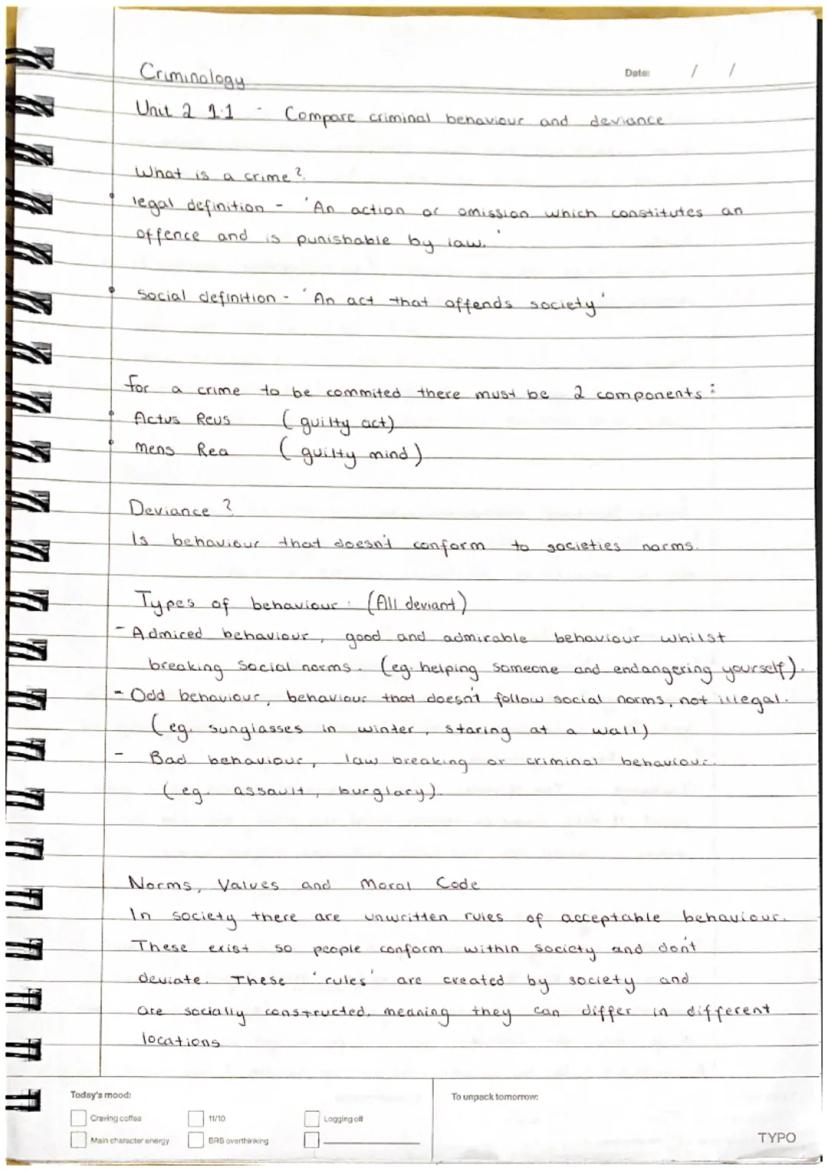 Criminology
Date: / /
Unit 2 1.1 - Compare criminal behaviour and deviance
What is a crime?
• legal definition - 'An action or omission which constitutes an
offence and is punishable by law.'
• Social definition - 'An act that offends society'
For a crime to be commited there must be 2 components:
• Actus Reus (guilty act)
• mens Rea (guilty mind)
Deviance?
Is behaviour that doesn't conform to societies norms.
Types of behaviour: (All deviant)
- Admired behaviour, good and admirable behaviour whilst
breaking social norms. (eg. helping someone and endangering yourself).
- Odd behaviour, behaviour that doesn't follow social norms, not illegal.
(eg. sunglasses in winter, staring at a wall)
- Bad behaviour, law breaking or criminal behaviour.
(eg. assault, burglary).
Norms, Values and Moral Code
In society there are unwritten rules of acceptable behaviour.
These exist so people conform within society and don't
deviate. These 'rules' are created by society and
are socially constructed, meaning they can differ in different
locations
Today's mood:
Craving coffee
11/10
Logging off
Main character energy
BRB overthinking
To unpack tomorrow:
TYPO